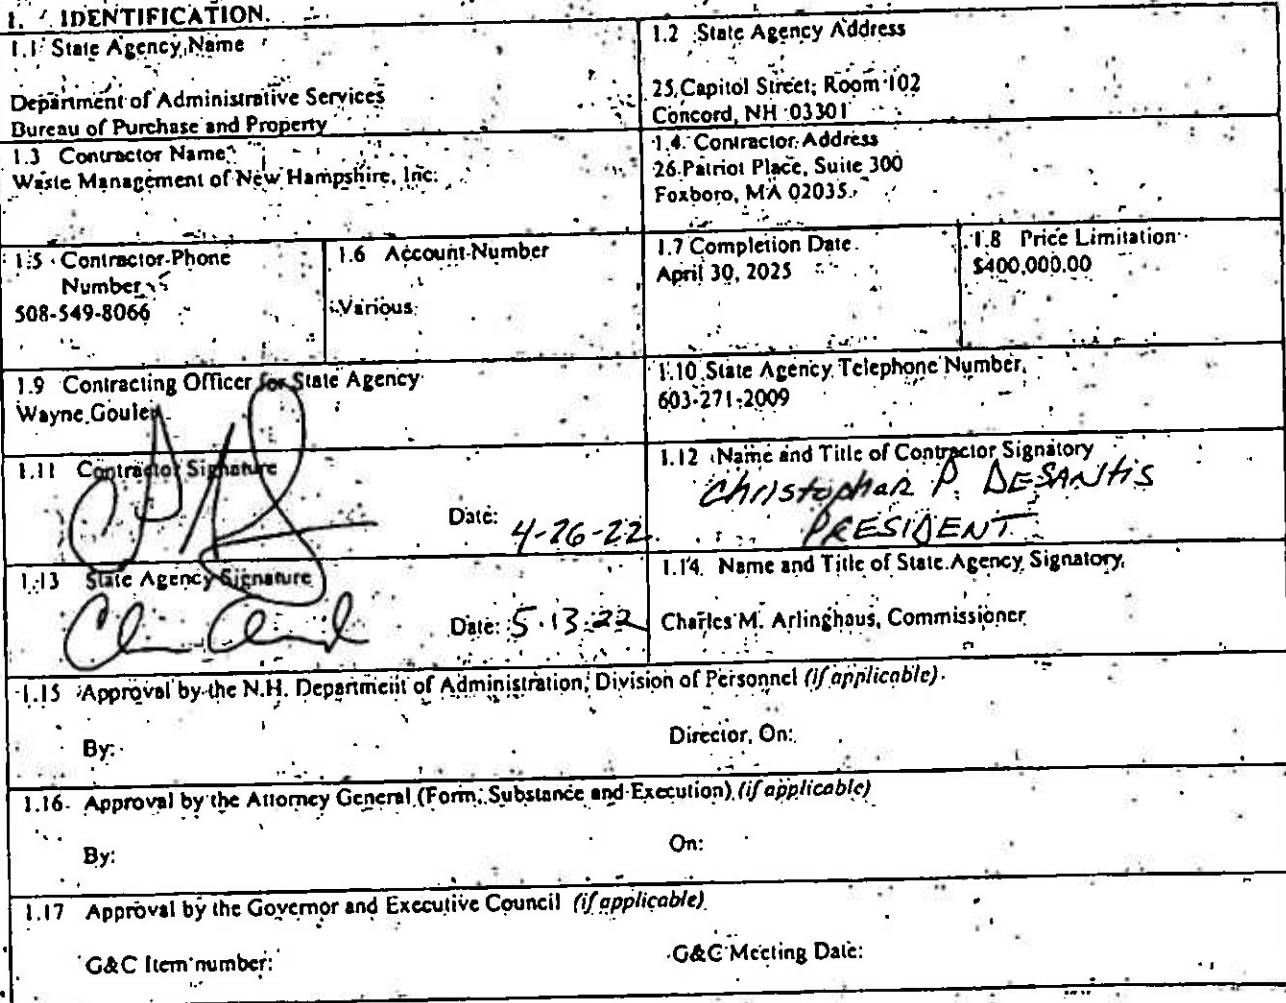 1. IDENTIFICATION.
1.1 State Agency Name
Department of Administrative Services
Bureau of Purchase and Property
1.2 State Agency Address
25 Capitol Street; Room 102
Concord, NH 03301
1.3 Contractor Name
Waste Management of New Hampshire, Inc.
1.4 Contractor Address
26 Patriot Place, Suite 300
Foxboro, MA 02035
1.5 Contractor Phone
Number
508-549-8066
1.6 Account Number
Various
1.7 Completion Date
April 30, 2025
1.8 Price Limitation
$400,000.00
1.9 Contracting Officer for State Agency
Wayne Goulet
1.10 State Agency Telephone Number
603-271-2009
1.11 Contractor Signature
Date: 4-26-22
1.12 Name and Title of Contractor Signatory
Christopher P. DeSantis
PRESIDENT
1.13 State Agency Signature
Date: 5.13.22
1.14 Name and Title of State Agency Signatory
Charles M. Arlinghaus, Commissioner
1.15 Approval by the N.H. Department of Administration, Division of Personnel (if applicable)
By: Director, On:
1.16 Approval by the Attorney General (Form, Substance and Execution) (if applicable)
By: On:
1.17 Approval by the Governor and Executive Council (if applicable)
G&C Item number: G&C Meeting Date: